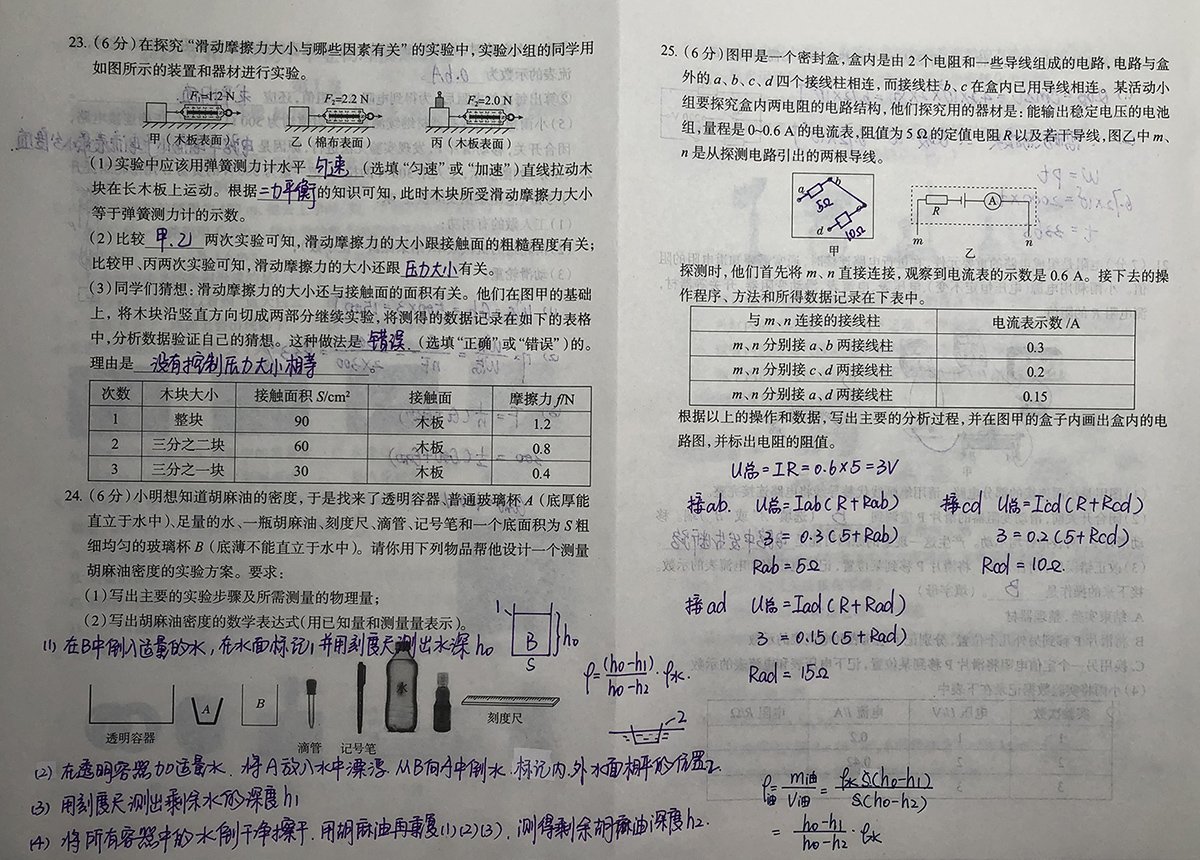 23. (6分)在探究“滑动摩擦力大小与哪些因素有关”的实验中,实验小组的同学用
如图所示的装置和器材进行实验。
F₁=1.2 N
F₂=2.2 N
F₃=2.0 N
甲(木板表面)
乙(棉布表面)
丙(木板表面)
(1)实验中应该用弹簧测力计水平 匀速 (选填“匀速”或“加速”)直线拉动木
块在长木板上运动。根据 二力平衡 的知识可知,此时木块所受滑动摩擦力大小
等于弹簧测力计的示数。
(2)比较 甲.乙 两次实验可知,滑动摩擦力的大小跟接触面的粗糙程度有关;
比较甲、丙两次实验可知,滑动摩擦力的大小还跟 压力大小 有关。
(3)同学们猜想:滑动摩擦力的大小还与接触面的面积有关。他们在图甲的基础
上,将木块沿竖直方向切成两部分继续实验,将测得的数据记录在如下的表格
中,分析数据验证自己的猜想。这种做法是 错误. (选填“正确”或“错误”)的。
理由是 没有控制压力大小相等
次数 木块大小 接触面积 S/cm² 接触面 摩擦力 f/N
1 整块 90 木板 1.2
2 三分之二块 60 木板 0.8
3 三分之一块 30 木板 0.4
24. (6分)小明想知道胡麻油的密度,于是找来了透明容器、普通玻璃杯 A(底厚能
直立于水中)、足量的水、一瓶胡麻油、刻度尺、滴管、记号笔和一个底面积为 S 粗
细均匀的玻璃杯 B(底薄不能直立于水中)。请你用下列物品帮他设计一个测量
胡麻油密度的实验方案。要求:
(1)写出主要的实验步骤及所需测量的物理量;
(2)写出胡麻油密度的数学表达式(用已知量和测量量表示)。
(1) 在B中倒入适量的水,在水面标记1,并用刻度尺测出水深h₀
1
B
S
h₀
ρ=(h₀-h₁)/(h₀-h₂) ρ水.
A
B
水
透明容器
滴管
记号笔
刻度尺
2
(2) 在透明容器加适量水. 将A放入水中漂浮. 从B向A中倒水. 标记内.外水面相平的位置2.
(3) 用刻度尺测出剩余水的深度h₁
(4) 将所有容器中的水倒干净擦干. 用胡麻油再重复(1)(2)(3). 测得剩余胡麻油深度h₂.
25. (6分)图甲是一个密封盒,盒内是由 2 个电阻和一些导线组成的电路,电路与盒
外的 a、b、c、d 四个接线柱相连,而接线柱 b、c 在盒内已用导线相连。某活动小
组要探究盒内两电阻的电路结构,他们探究用的器材是:能输出稳定电压的电池
组,量程是 0~0.6 A 的电流表,阻值为 5 Ω 的定值电阻 R 以及若干导线,图乙中 m、
n 是从探测电路引出的两根导线。
a
b
5Ω
d
10Ω
甲
R
A
m
n
乙
探测时,他们首先将 m、n 直接连接,观察到电流表的示数是 0.6 A。接下去的操
作程序、方法和所得数据记录在下表中。
与 m、n 连接的接线柱 电流表示数 /A
m、n 分别接 a、b 两接线柱 0.3
m、n 分别接 c、d 两接线柱 0.2
m、n 分别接 a、d 两接线柱 0.15
根据以上的操作和数据,写出主要的分析过程,并在图甲的盒子内画出盒内的电
路图,并标出电阻的阻值。
U总=IR=0.6×5=3V
接ab. U总=Iab(R+Rab)
3=0.3(5+Rab)
Rab=5Ω
接cd U总=Icd(R+Rcd)
3=0.2(5+Rcd)
Rcd=10Ω.
接ad U总=Iad(R+Rad)
3=0.15(5+Rad)
Rad=15Ω
ρ油=m油/V油=ρ水S(h₀-h₁)/S(h₀-h₂)
=(h₀-h₁)/(h₀-h₂)·ρ水